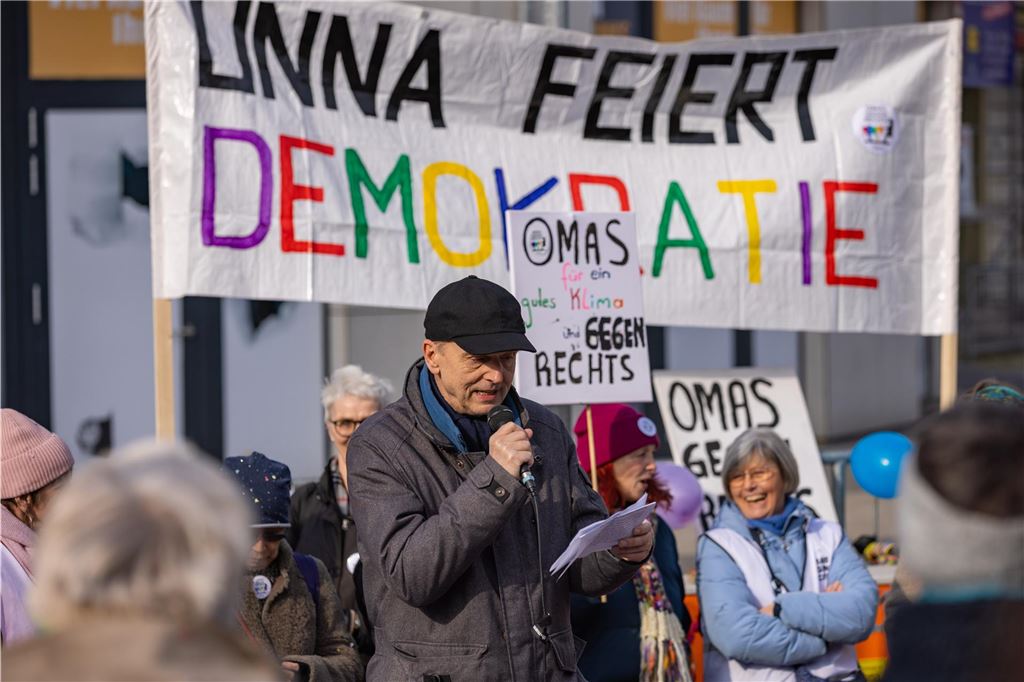 UNNA FEIERT
DEMOKRATIE
OMAS
für ein
gutes KLima
und GEGEN
RECHTS
OMAS
GEGEN